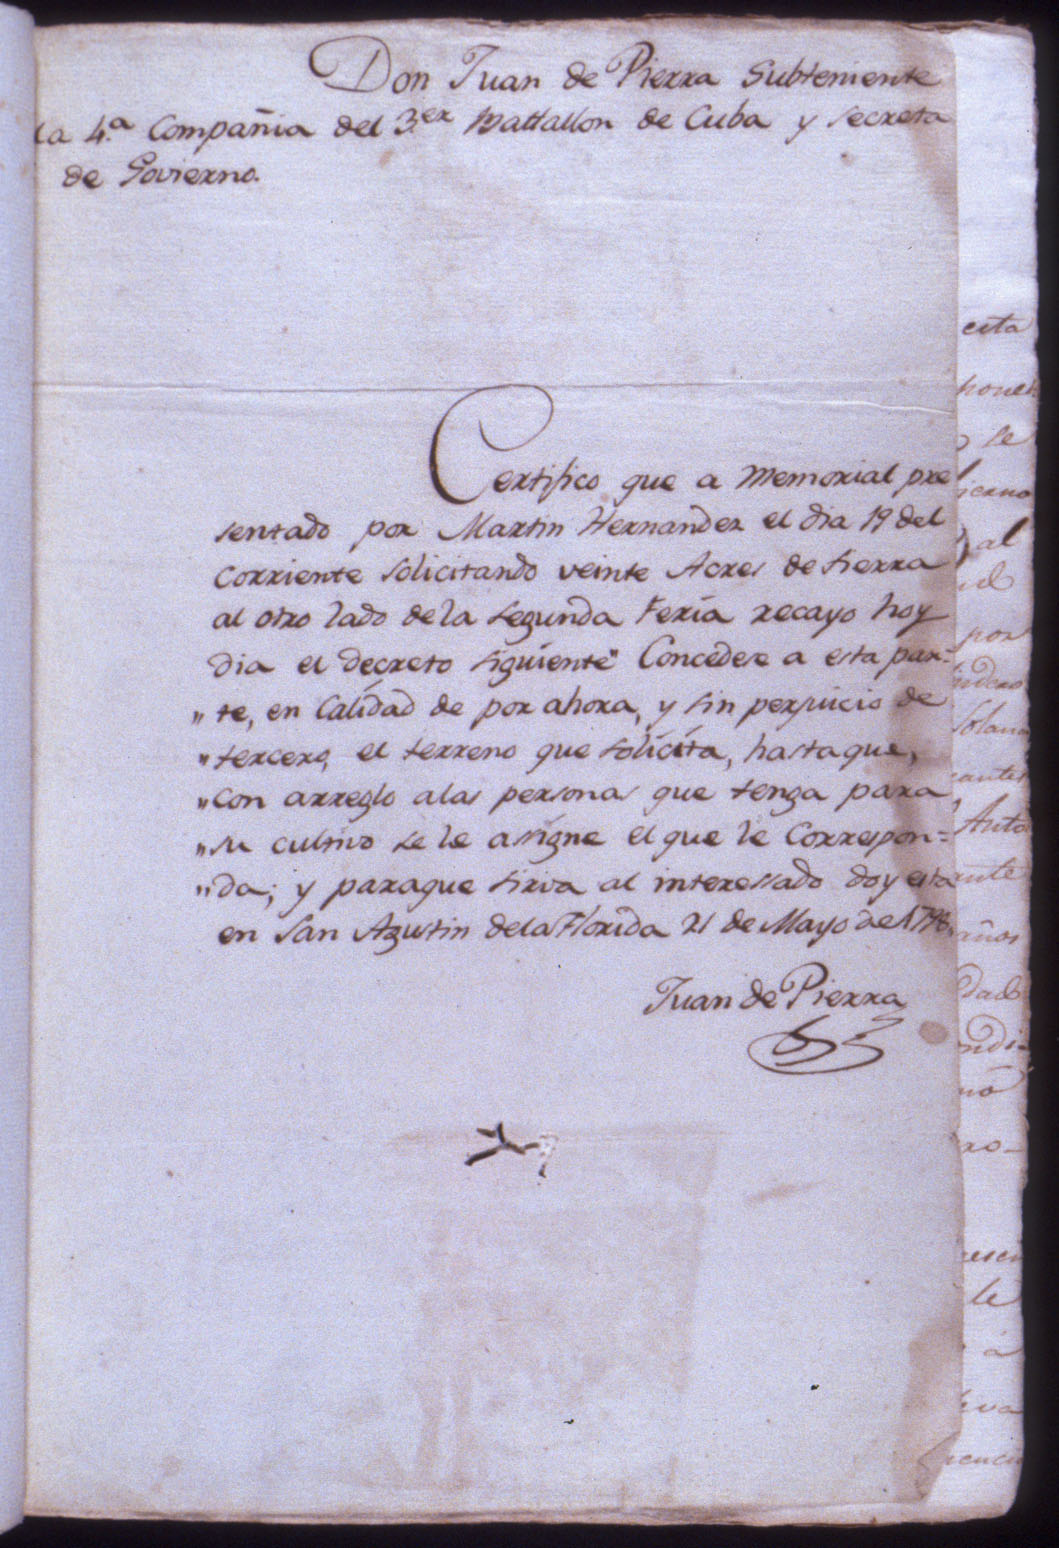 Don Juan de Pierra Subteniente
la 4.ª Compañia del 3.er Battallon de Cuba y Secreta
de Govierno.
Certifico que a Memorial pre
sentado por Martin Hernandez el dia 19 del
Corriente Solicitando veinte Acres de tierra
al otro lado de la segunda Feria recayo hoy
dia el decreto siguiente" Concedese a esta par=
"te, en Calidad de por ahora, y sin perjuicio de
"tercero, el terreno que solicita, hasta que,
"con arreglo alas personas que tenga para
"su cultivo se le asigne el que le Correspon=
"da; y paraque sirva al interessado doy esta
en San Agustin dela Florida 21 de Mayo de
Juan de Pierra
esta
se
al
por
Solana
Anto
años
le
á